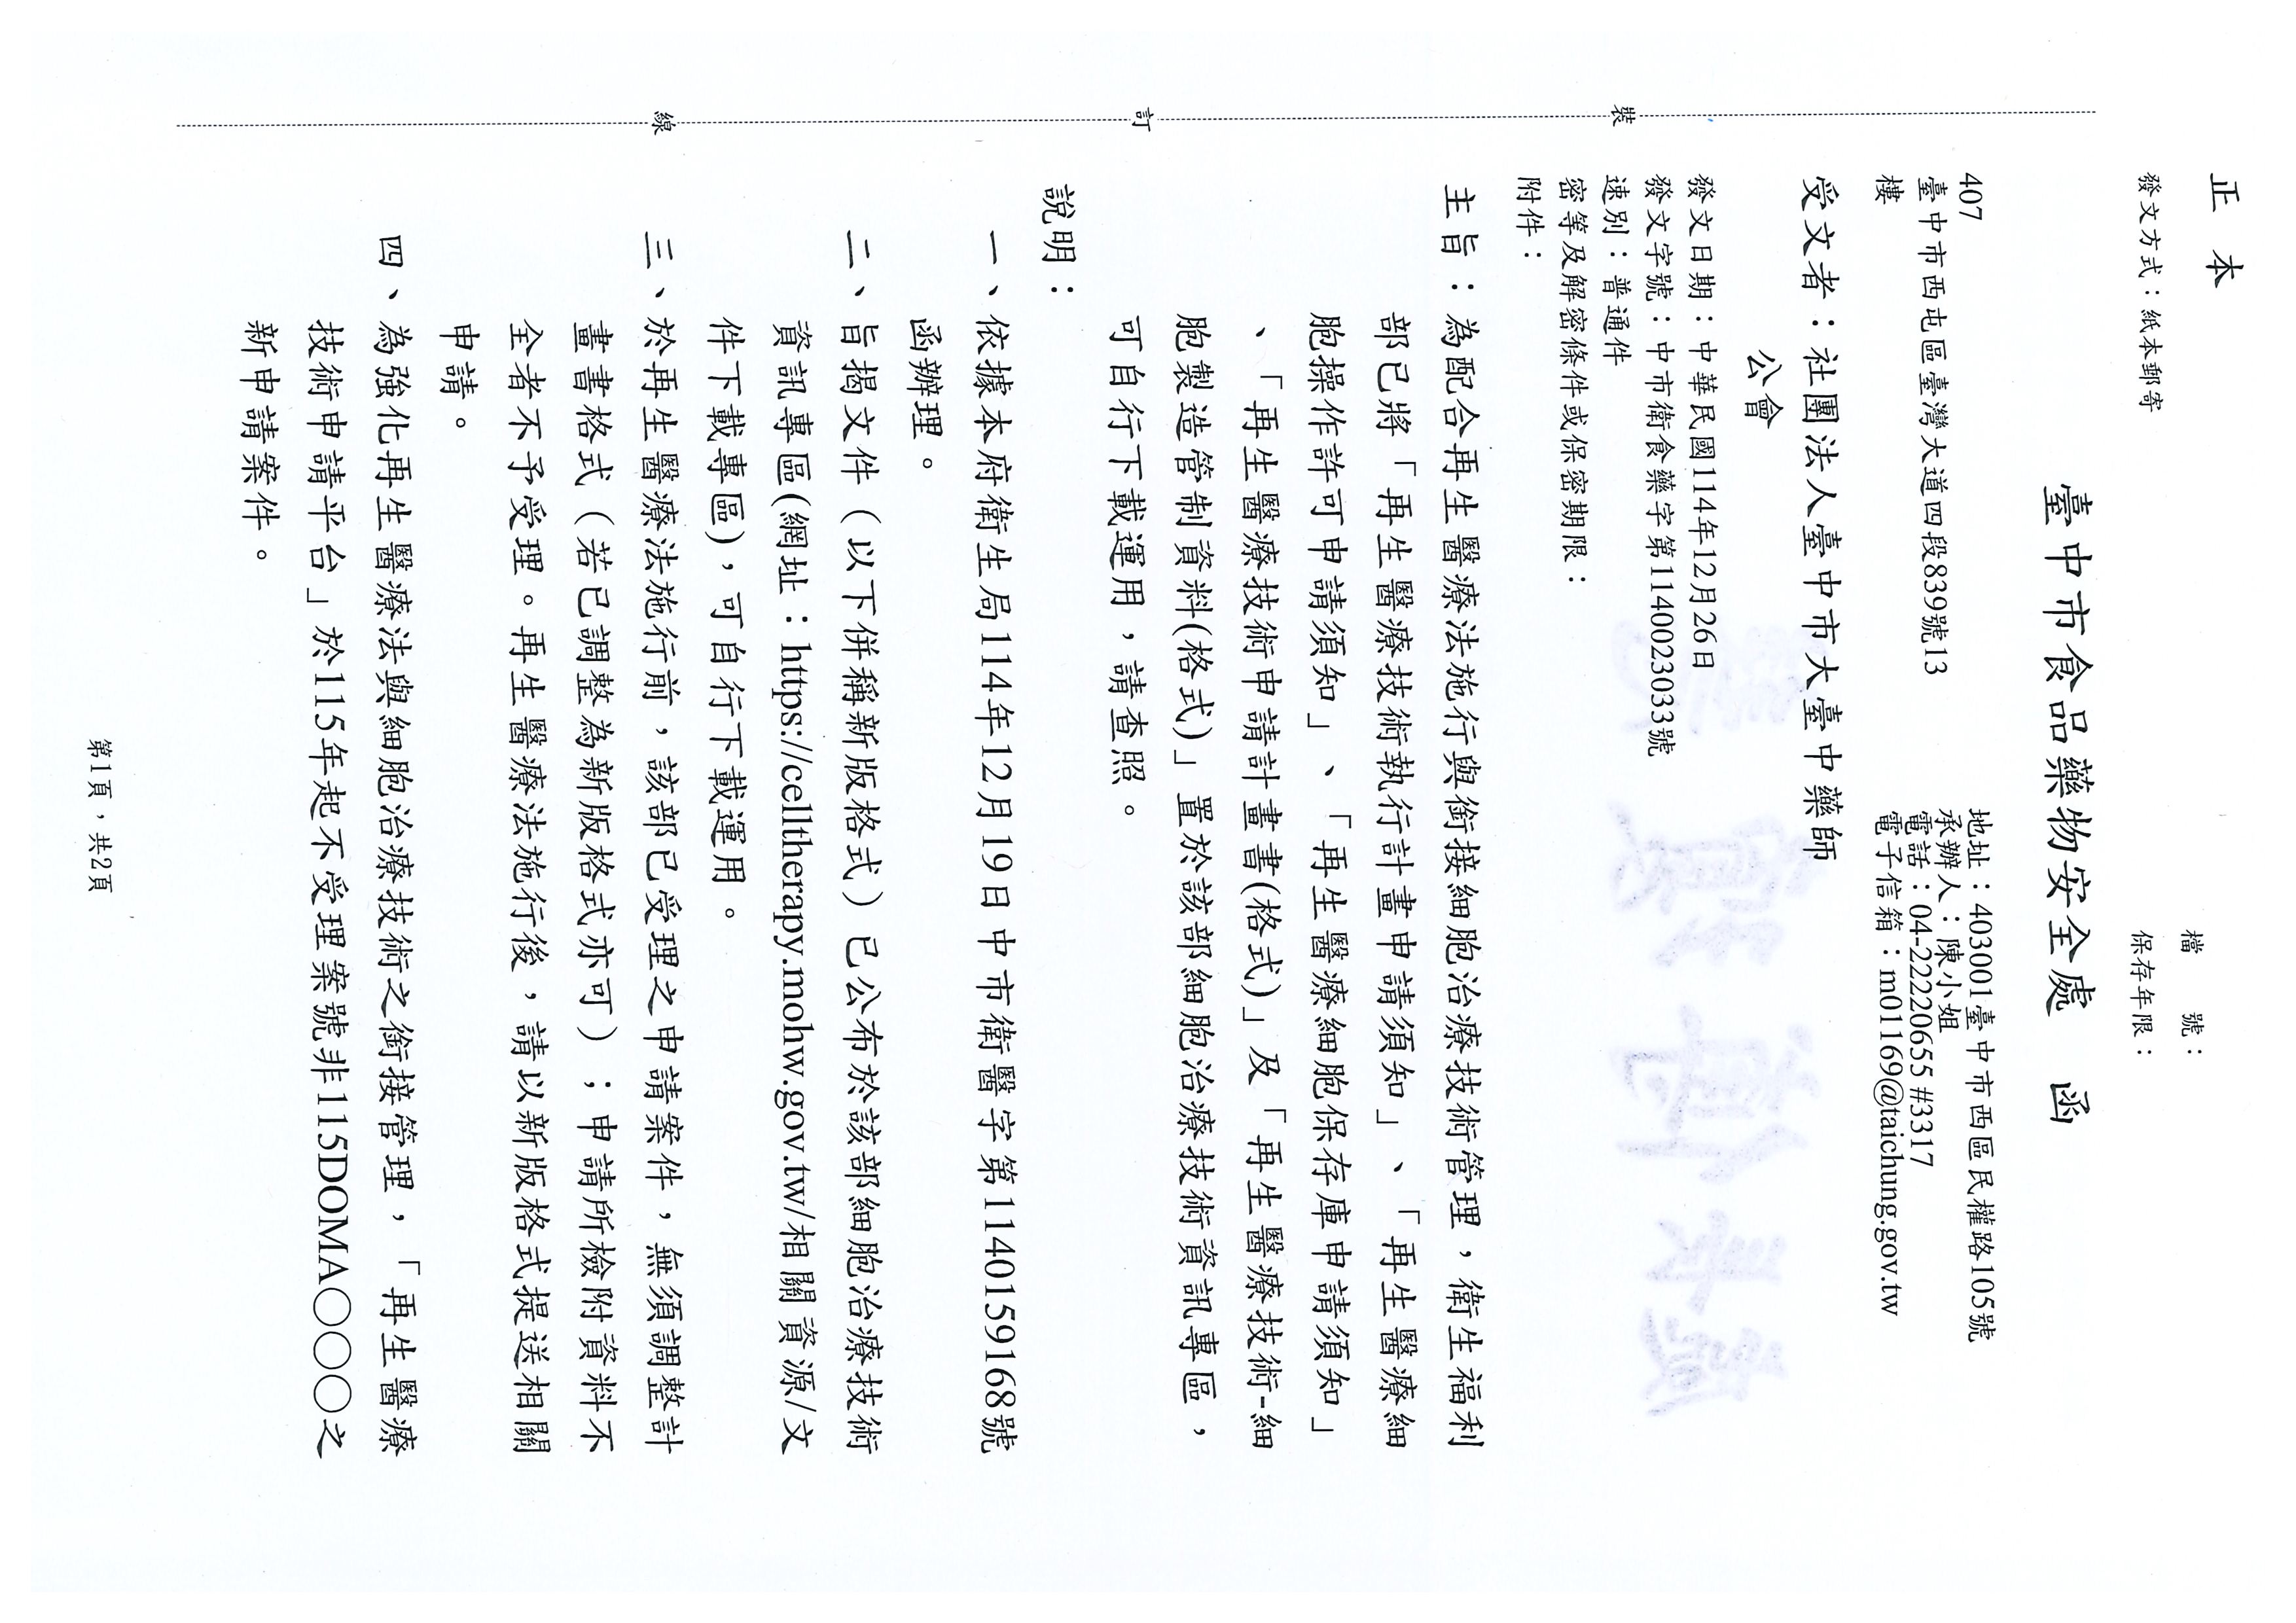 正本
檔　　號：
保存年限：
發文方式：紙本郵寄
臺中市食品藥物安全處　函
地址：403001臺中市西區民權路105號
承辦人：陳小姐
電話：04-22220655 #3317
電子信箱：m01169@taichung.gov.tw
407
臺中市西屯區臺灣大道四段839號13
樓
受文者：社團法人臺中市大臺中藥師
公會
發文日期：中華民國114年12月26日
發文字號：中市衛食藥字第1140023033號
速別：普通件
密等及解密條件或保密期限：
附件：
主旨：為配合再生醫療法施行與銜接細胞治療技術管理，衛生福利
部已將「再生醫療技術執行計畫申請須知」、「再生醫療細
胞操作許可申請須知」、「再生醫療細胞保存庫申請須知」
、「再生醫療技術申請計畫書(格式)」及「再生醫療技術-細
胞製造管制資料(格式)」置於該部細胞治療技術資訊專區，
可自行下載運用，請查照。
說明：
一、依據本府衛生局114年12月19日中市衛醫字第1140159168號
函辦理。
二、旨揭文件（以下併稱新版格式）已公布於該部細胞治療技術
資訊專區(網址：https://celltherapy.mohw.gov.tw/相關資源/文
件下載專區)，可自行下載運用。
三、於再生醫療法施行前，該部已受理之申請案件，無須調整計
畫書格式（若已調整為新版格式亦可）；申請所檢附資料不
全者不予受理。再生醫療法施行後，請以新版格式提送相關
申請。
四、為強化再生醫療法與細胞治療技術之銜接管理，「再生醫療
技術申請平台」於115年起不受理案號非115DOMA〇〇〇〇之
新申請案件。
裝
訂
線
第1頁，共2頁